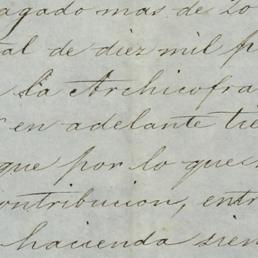 agado mas de 20
tal de diez mil p
la Archicofra
en adelante tie
que por lo ques
ontribucion, entr
hacienda sien